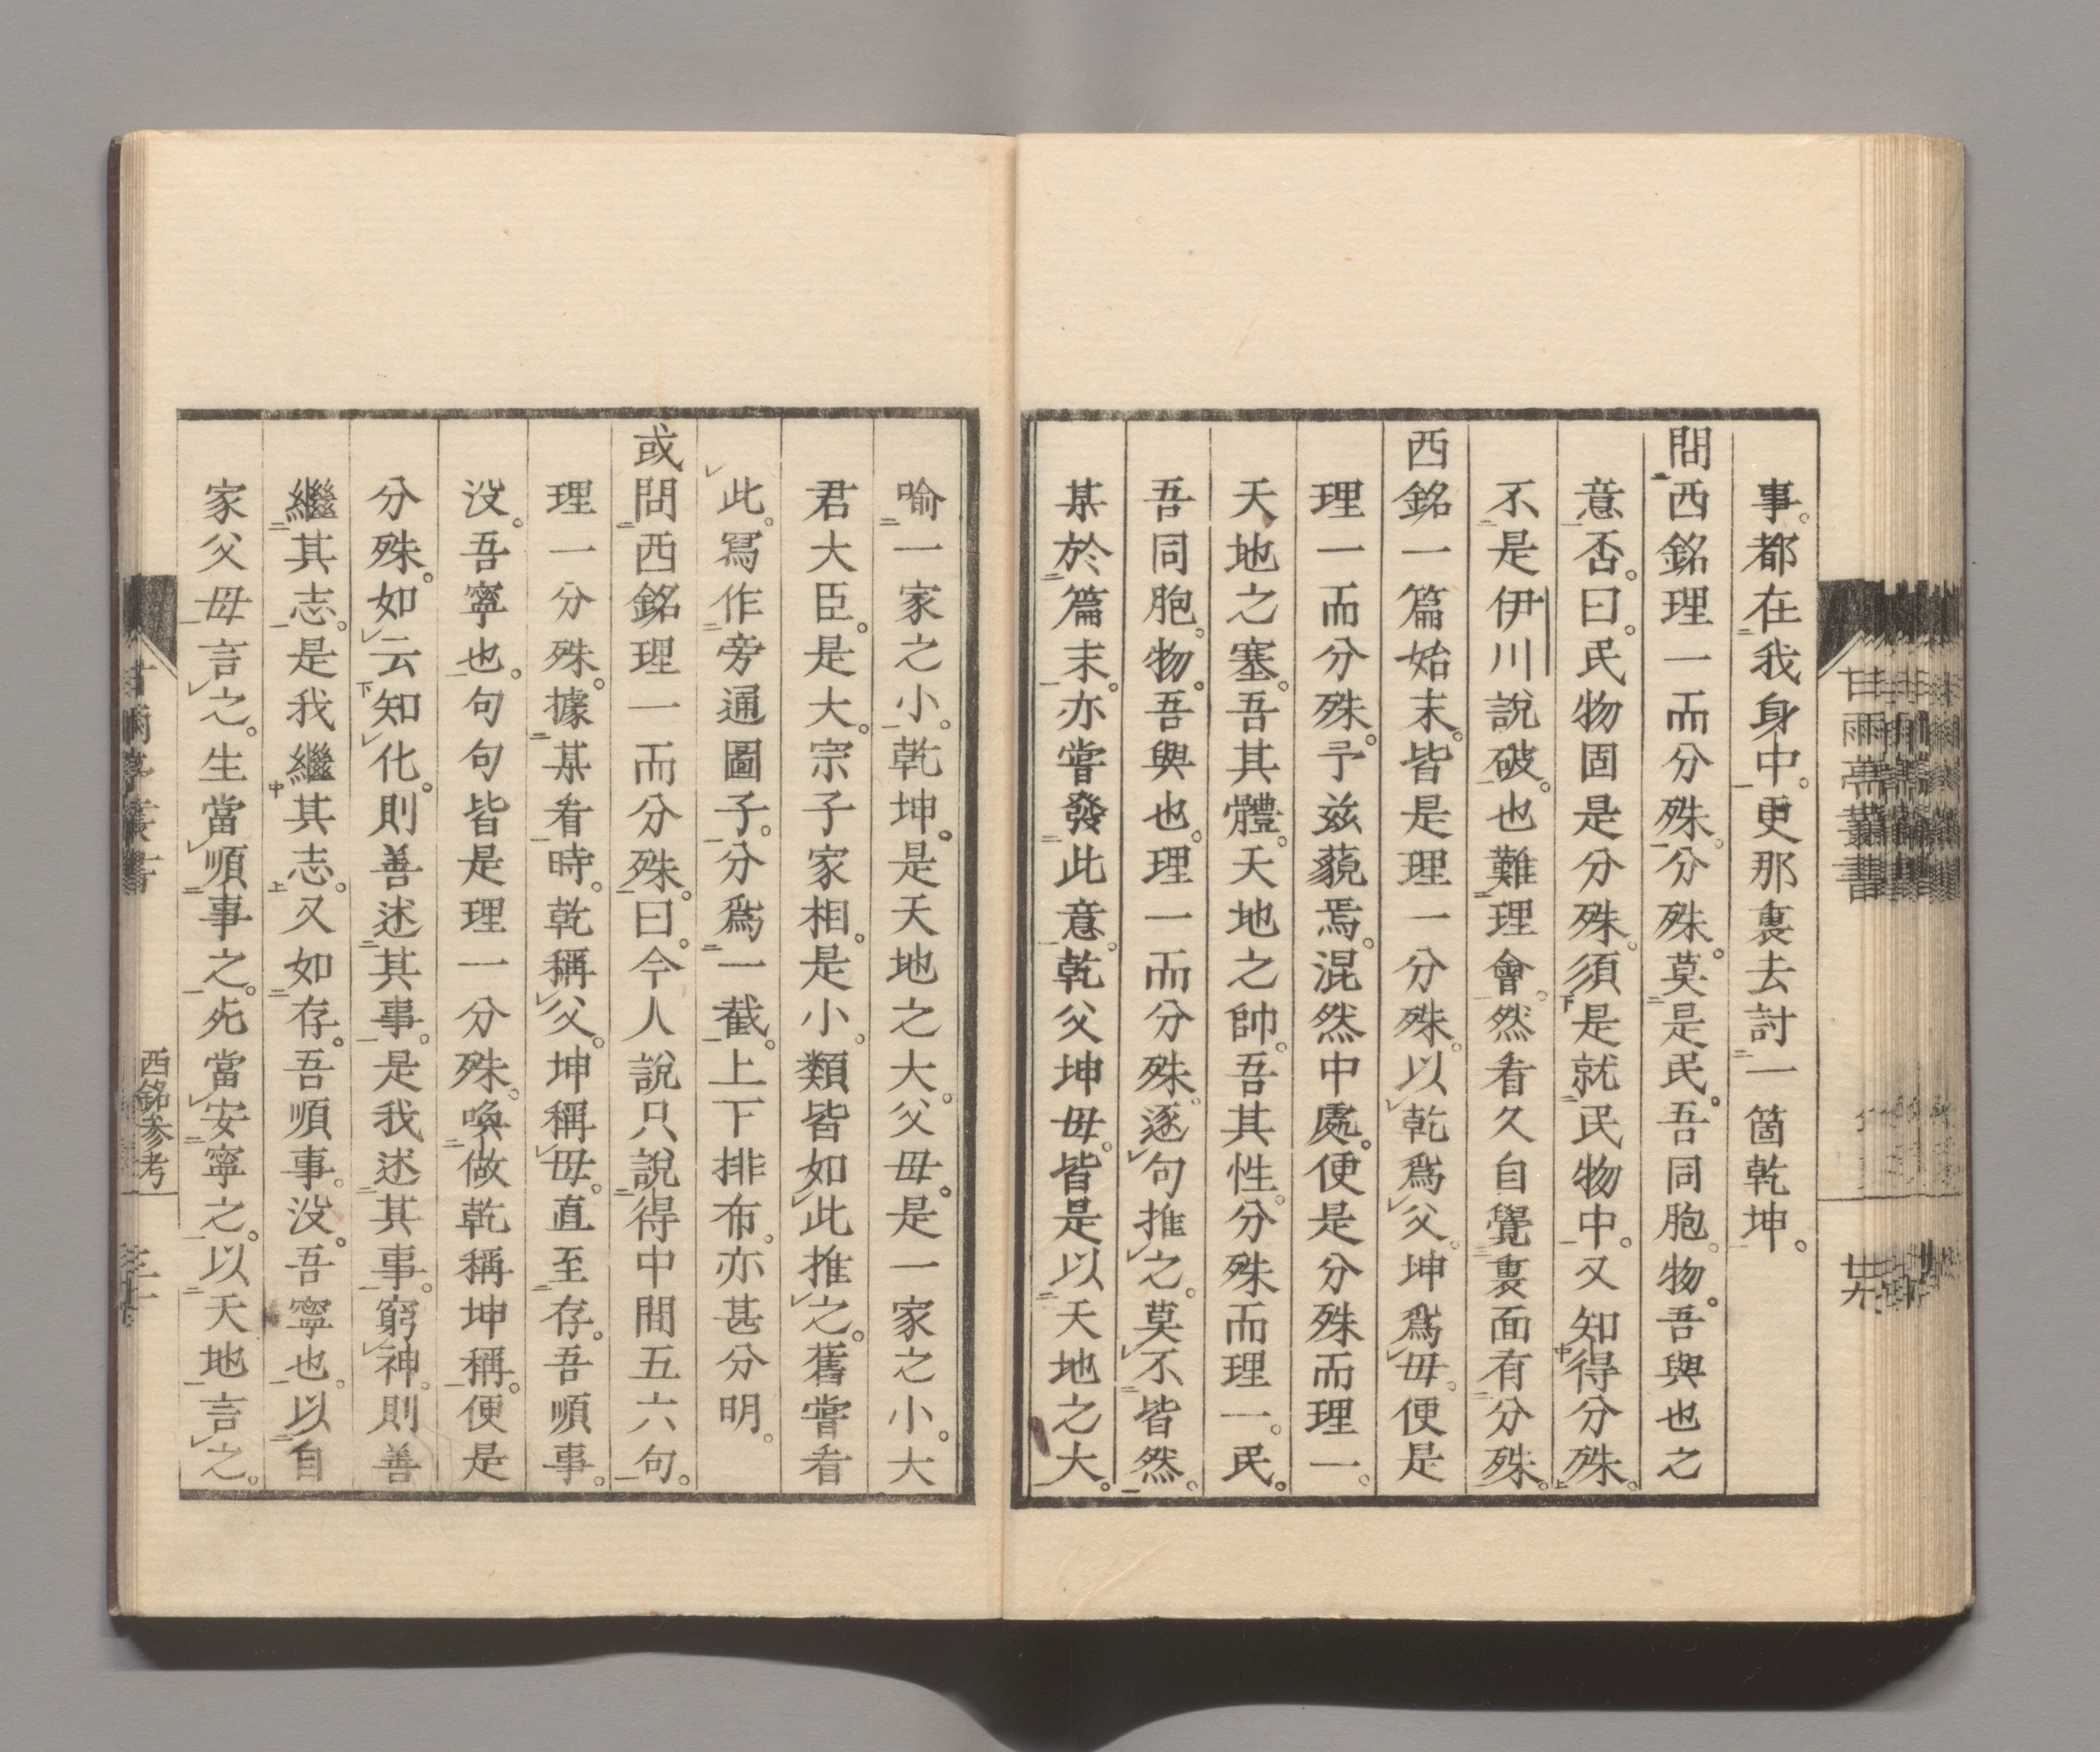 事。都在我身中。更那裏去討一箇乾坤。
問西銘理一而分殊。分殊。莫是民。吾同胞。物。吾與也之
意否。曰。民物固是分殊。須是就民物中。又知得分殊。
不是伊川說破。也難理會。然看久自覺裏面有分殊。
西銘一篇始末。皆是理一分殊。以乾爲父。坤爲毋。便是
理一而分殊。予玆藐焉。混然中處。便是分殊而理一。
天地之塞。吾其體。天地之帥。吾其性。分殊而理一。民。
吾同胞。物。吾與也。理一而分殊。逐句推之。莫不皆然。
某於篇末。亦嘗發此意。乾父坤毋。皆是以天地之大。
喻一家之小。乾坤。是天地之大。父毋。是一家之小。大
君大臣。是大。宗子家相。是小。類皆如此推之。舊嘗看
此。寫作旁通圖子。分爲一截。上下排布。亦甚分明。
或問西銘理一而分殊。曰。今人說只說得中間五六句。
理一分殊。據某看時。乾稱父。坤稱毋。直至存。吾順事。
沒。吾寧也。句句皆是理一分殊。喚做乾稱坤稱。便是
分殊。如云知化。則善述其事。是我述其事。窮神。則善
繼其志。是我繼其志。又如存。吾順事。沒。吾寧也。以自
家父毋言之。生當順事之。死當安寧之。以天地言之。
甘雨亭叢書
廿六
西銘參考